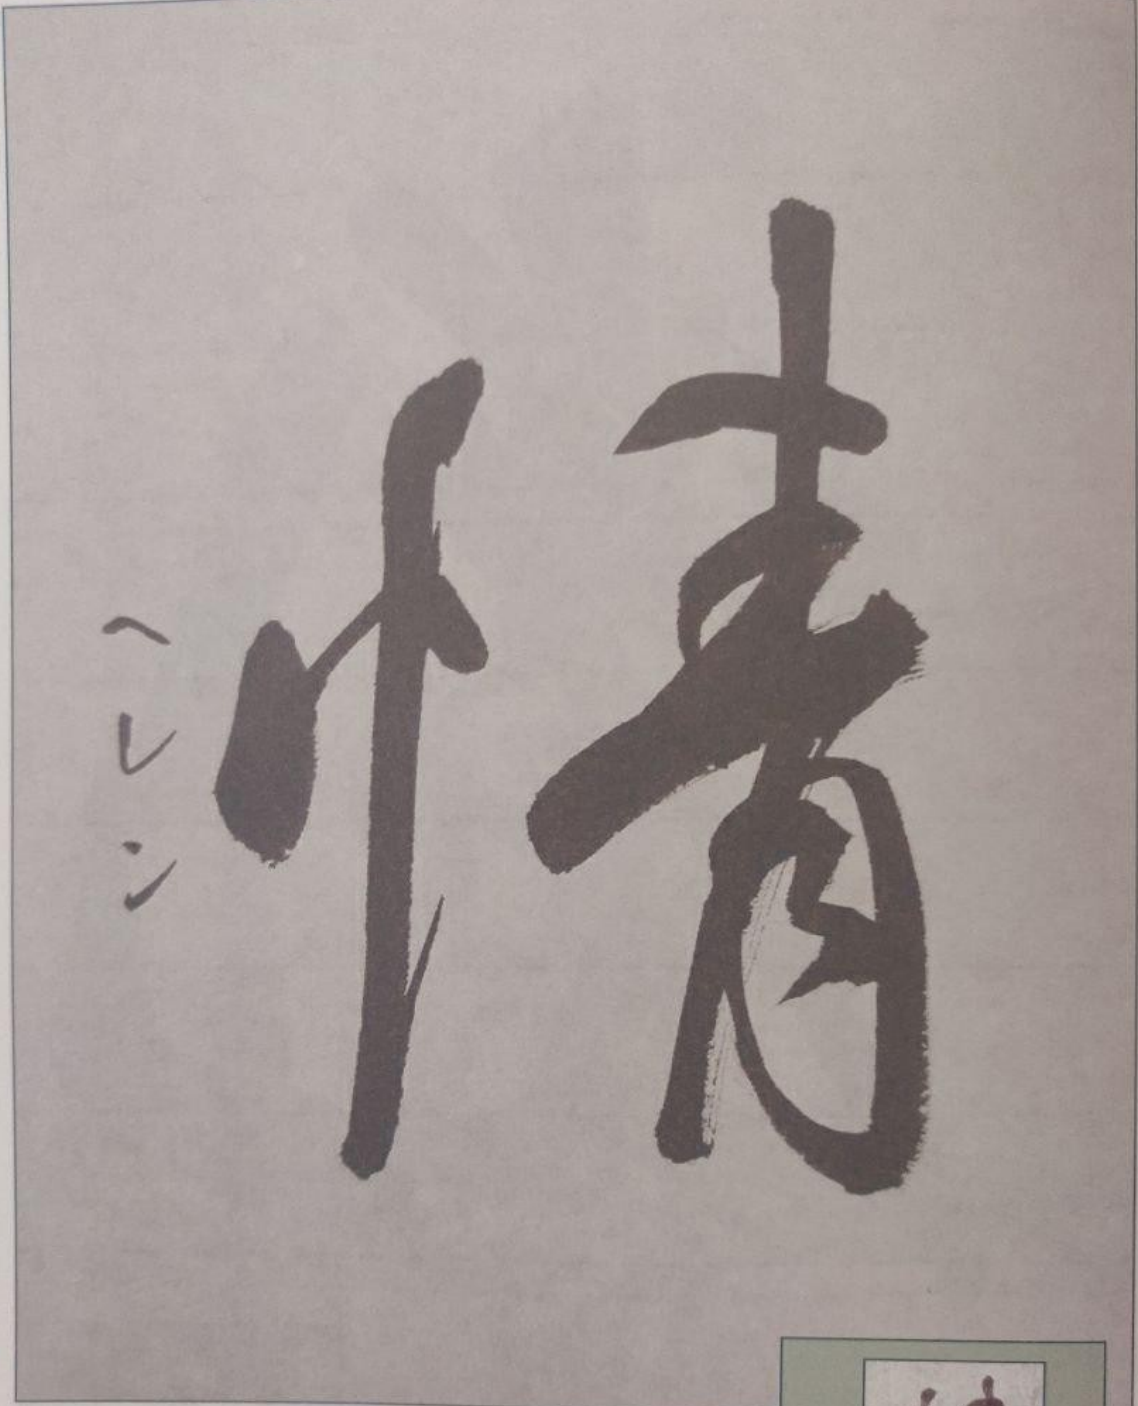 情
ヘレン